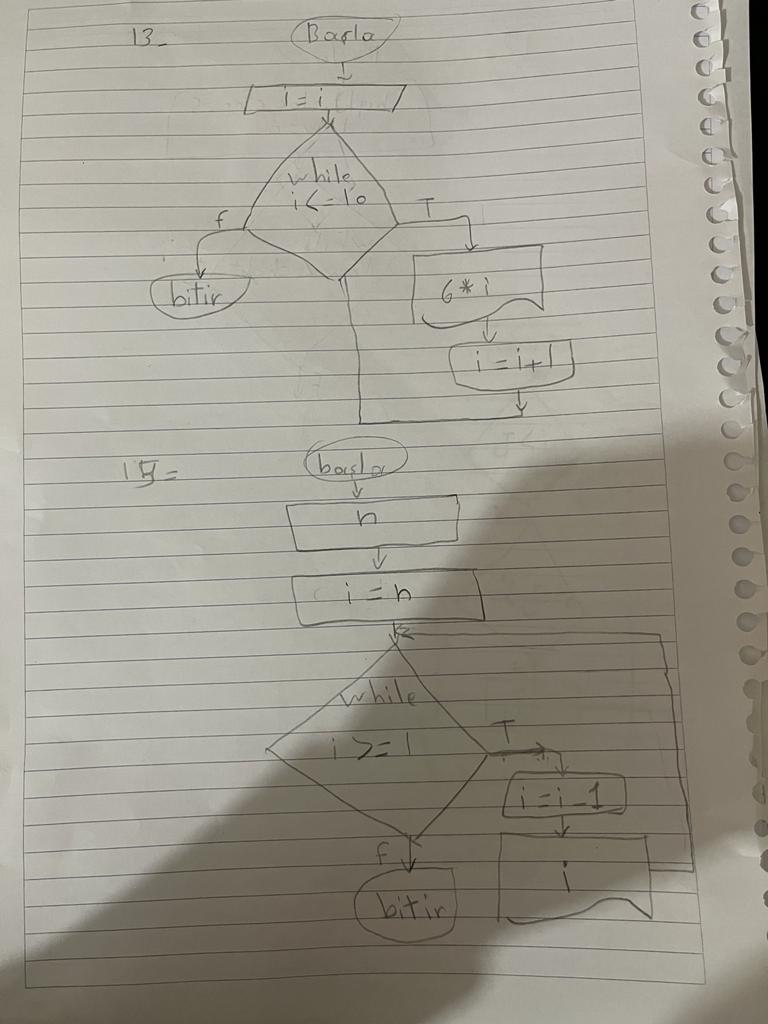 13-
Başla
i = i
while
i <= 10
F
T
bitir
6 * i
i = i+1
başla
n
i = n
while
i >= 1
T
i = i-1
F
i
bitir